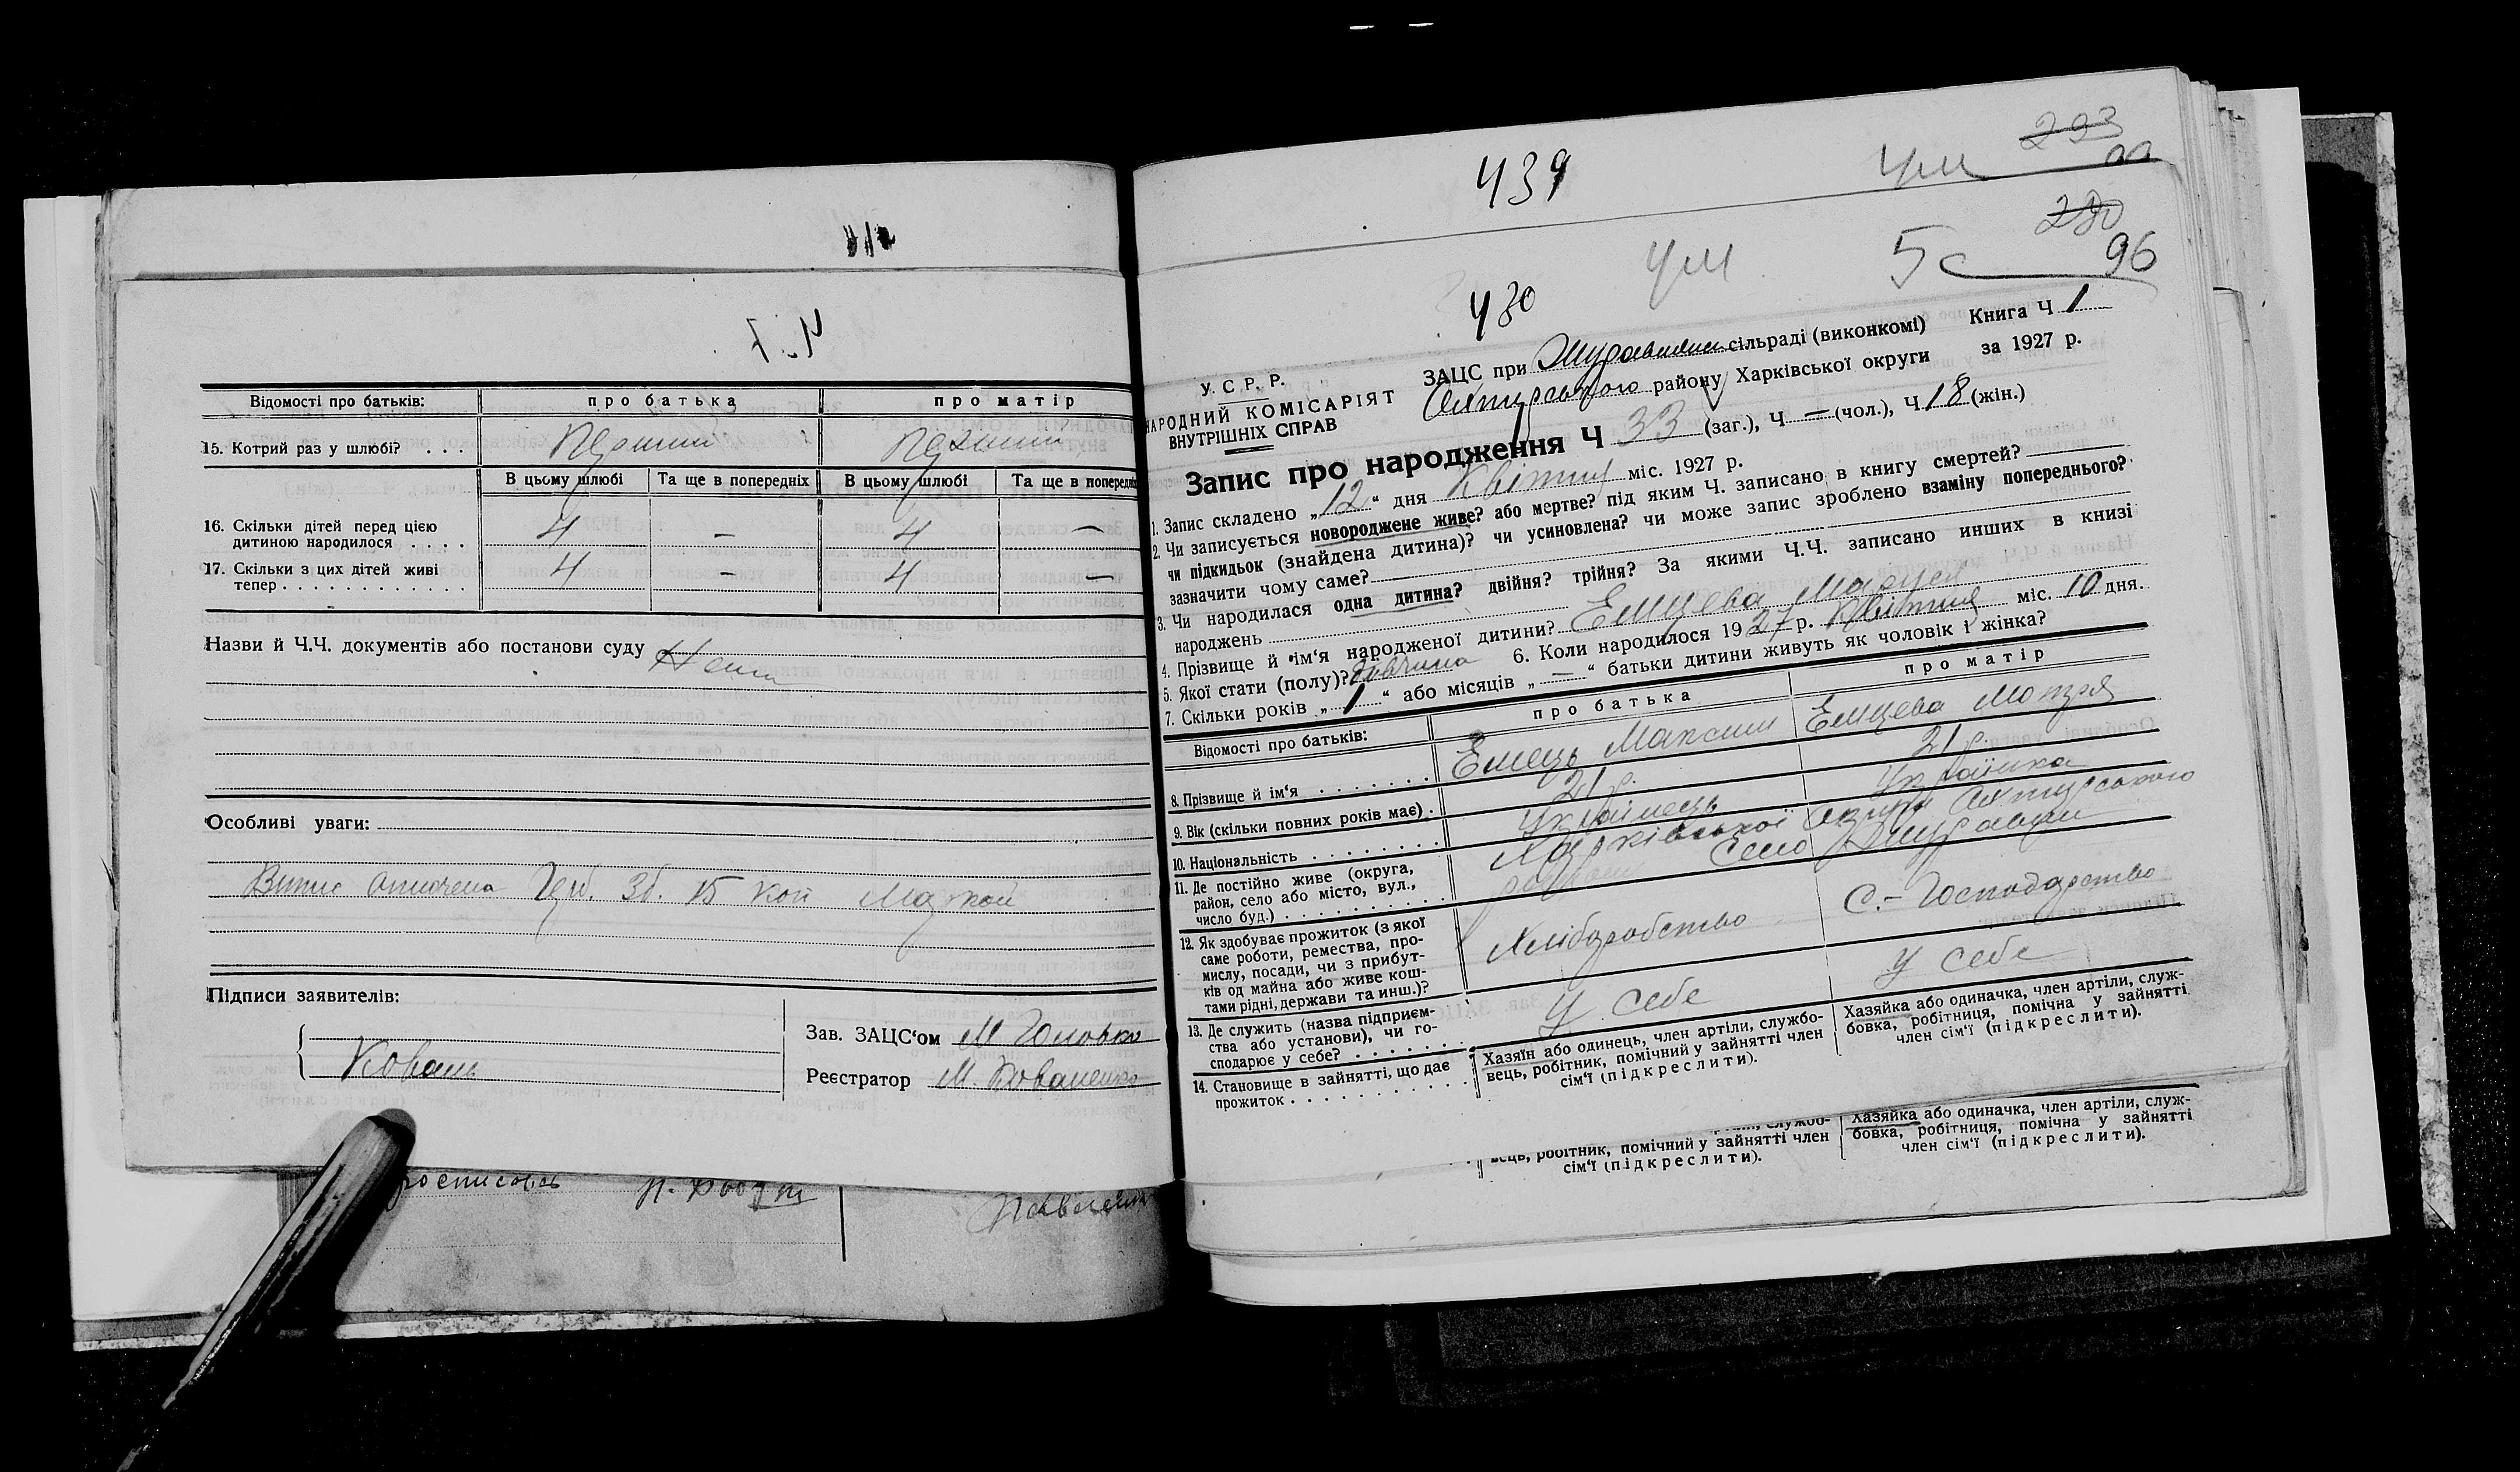 Ч. 7
Відомості про батьків: про батька про матір
15. Котрий раз у шлюбі? . . . Перший Перший
В цьому шлюбі Та ще в попередніх В цьому шлюбі Та ще в попередніх
16. Скільки дітей перед цією
дитиною народилося . . . . 4 — 4 —
17. Скільки з цих дітей живі
тепер . . . . . . . . . . . . 4 — 4 —
Назви й Ч.Ч. документів або постанови суду Нема
Особливі уваги:
Випис оплочена Герб. Зб. 15 коп Маркой
Підписи заявителів:
Коваль
Зав. ЗАЦС'ом М Головко
Реєстратор М. Коваленко
439 чм 293
99
280
чм 5с 96
430
У. С. Р. Р.
НАРОДНИЙ КОМІСАРІЯТ
ВНУТРІШНІХ СПРАВ
ЗАЦС при сільраді (виконкомі) Книга Ч 1
Охтирського району Харківської округи за 1927 р.
Запис про народження Ч 33 (заг.), Ч — (чол.), Ч 18 (жін.)
1. Запис складено „12“ дня Квітня міс. 1927 р.
2. Чи записується новороджене живе? або мертве? під яким Ч. записано в книгу смертей?
чи підкидьок (знайдена дитина)? чи усиновлена? чи може запис зроблено взаміну попереднього?
зазначити чому саме?
3. Чи народилася одна дитина? двійня? трійня? За якими Ч.Ч. записано инших в книзі
народжень
4. Прізвище й ім'я народженої дитини? Емцева Маруся
5. Якої стати (полу)? дівчина 6. Коли народилося 1927 р. Квітня міс. 10 дня.
7. Скільки років „1“ або місяців „—“ батьки дитини живуть як чоловік і жінка?
Відомості про батьків: про батька про матір
8. Прізвище й ім'я . . . . . . . Емець Максим Емцева Мотря
9. Вік (скільки повних років має) . 21 р. 21 р.
10. Національність . . . . . . . . Українець Українка
11. Де постійно живе (округа, Харківської округи Охтирського
район, село або місто, вул., району Село
число буд.) . . . . . . . . . .
12. Як здобуває прожиток (з якої
саме роботи, ремества, про-
мислу, посади, чи з прибут-
ків од майна або живе кош-
тами рідні, держави та инш.)? Хліборобство С.-Господарство
13. Де служить (назва підприєм-
ства або установи), чи го-
сподарює у себе? . . . . . . . У себе У себе
14. Становище в зайнятті, що дає
прожиток . . . . . . . . . . .
Хазяїн або одинець, член артіли, службо-
вець, робітник, помічний у зайнятті член
сім'ї (підкреслити).
Хазяйка або одиначка, член артіли, служ-
бовка, робітниця, помічна у зайнятті
член сім'ї (підкреслити).
вець, робітник, помічний у зайнятті член
сім'ї (підкреслити).
Хазяйка або одиначка, член артіли, служ-
бовка, робітниця, помічна у зайнятті
член сім'ї (підкреслити).